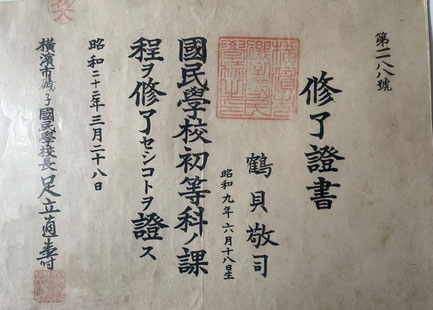 第二八八號
修了證書
鶴貝敬司
昭和九年六月十八日生
國民學校初等科ノ課
程ヲ修了セシコトヲ證ス
昭和二十二年三月二十八日
橫濱市磯子國民學校長足立